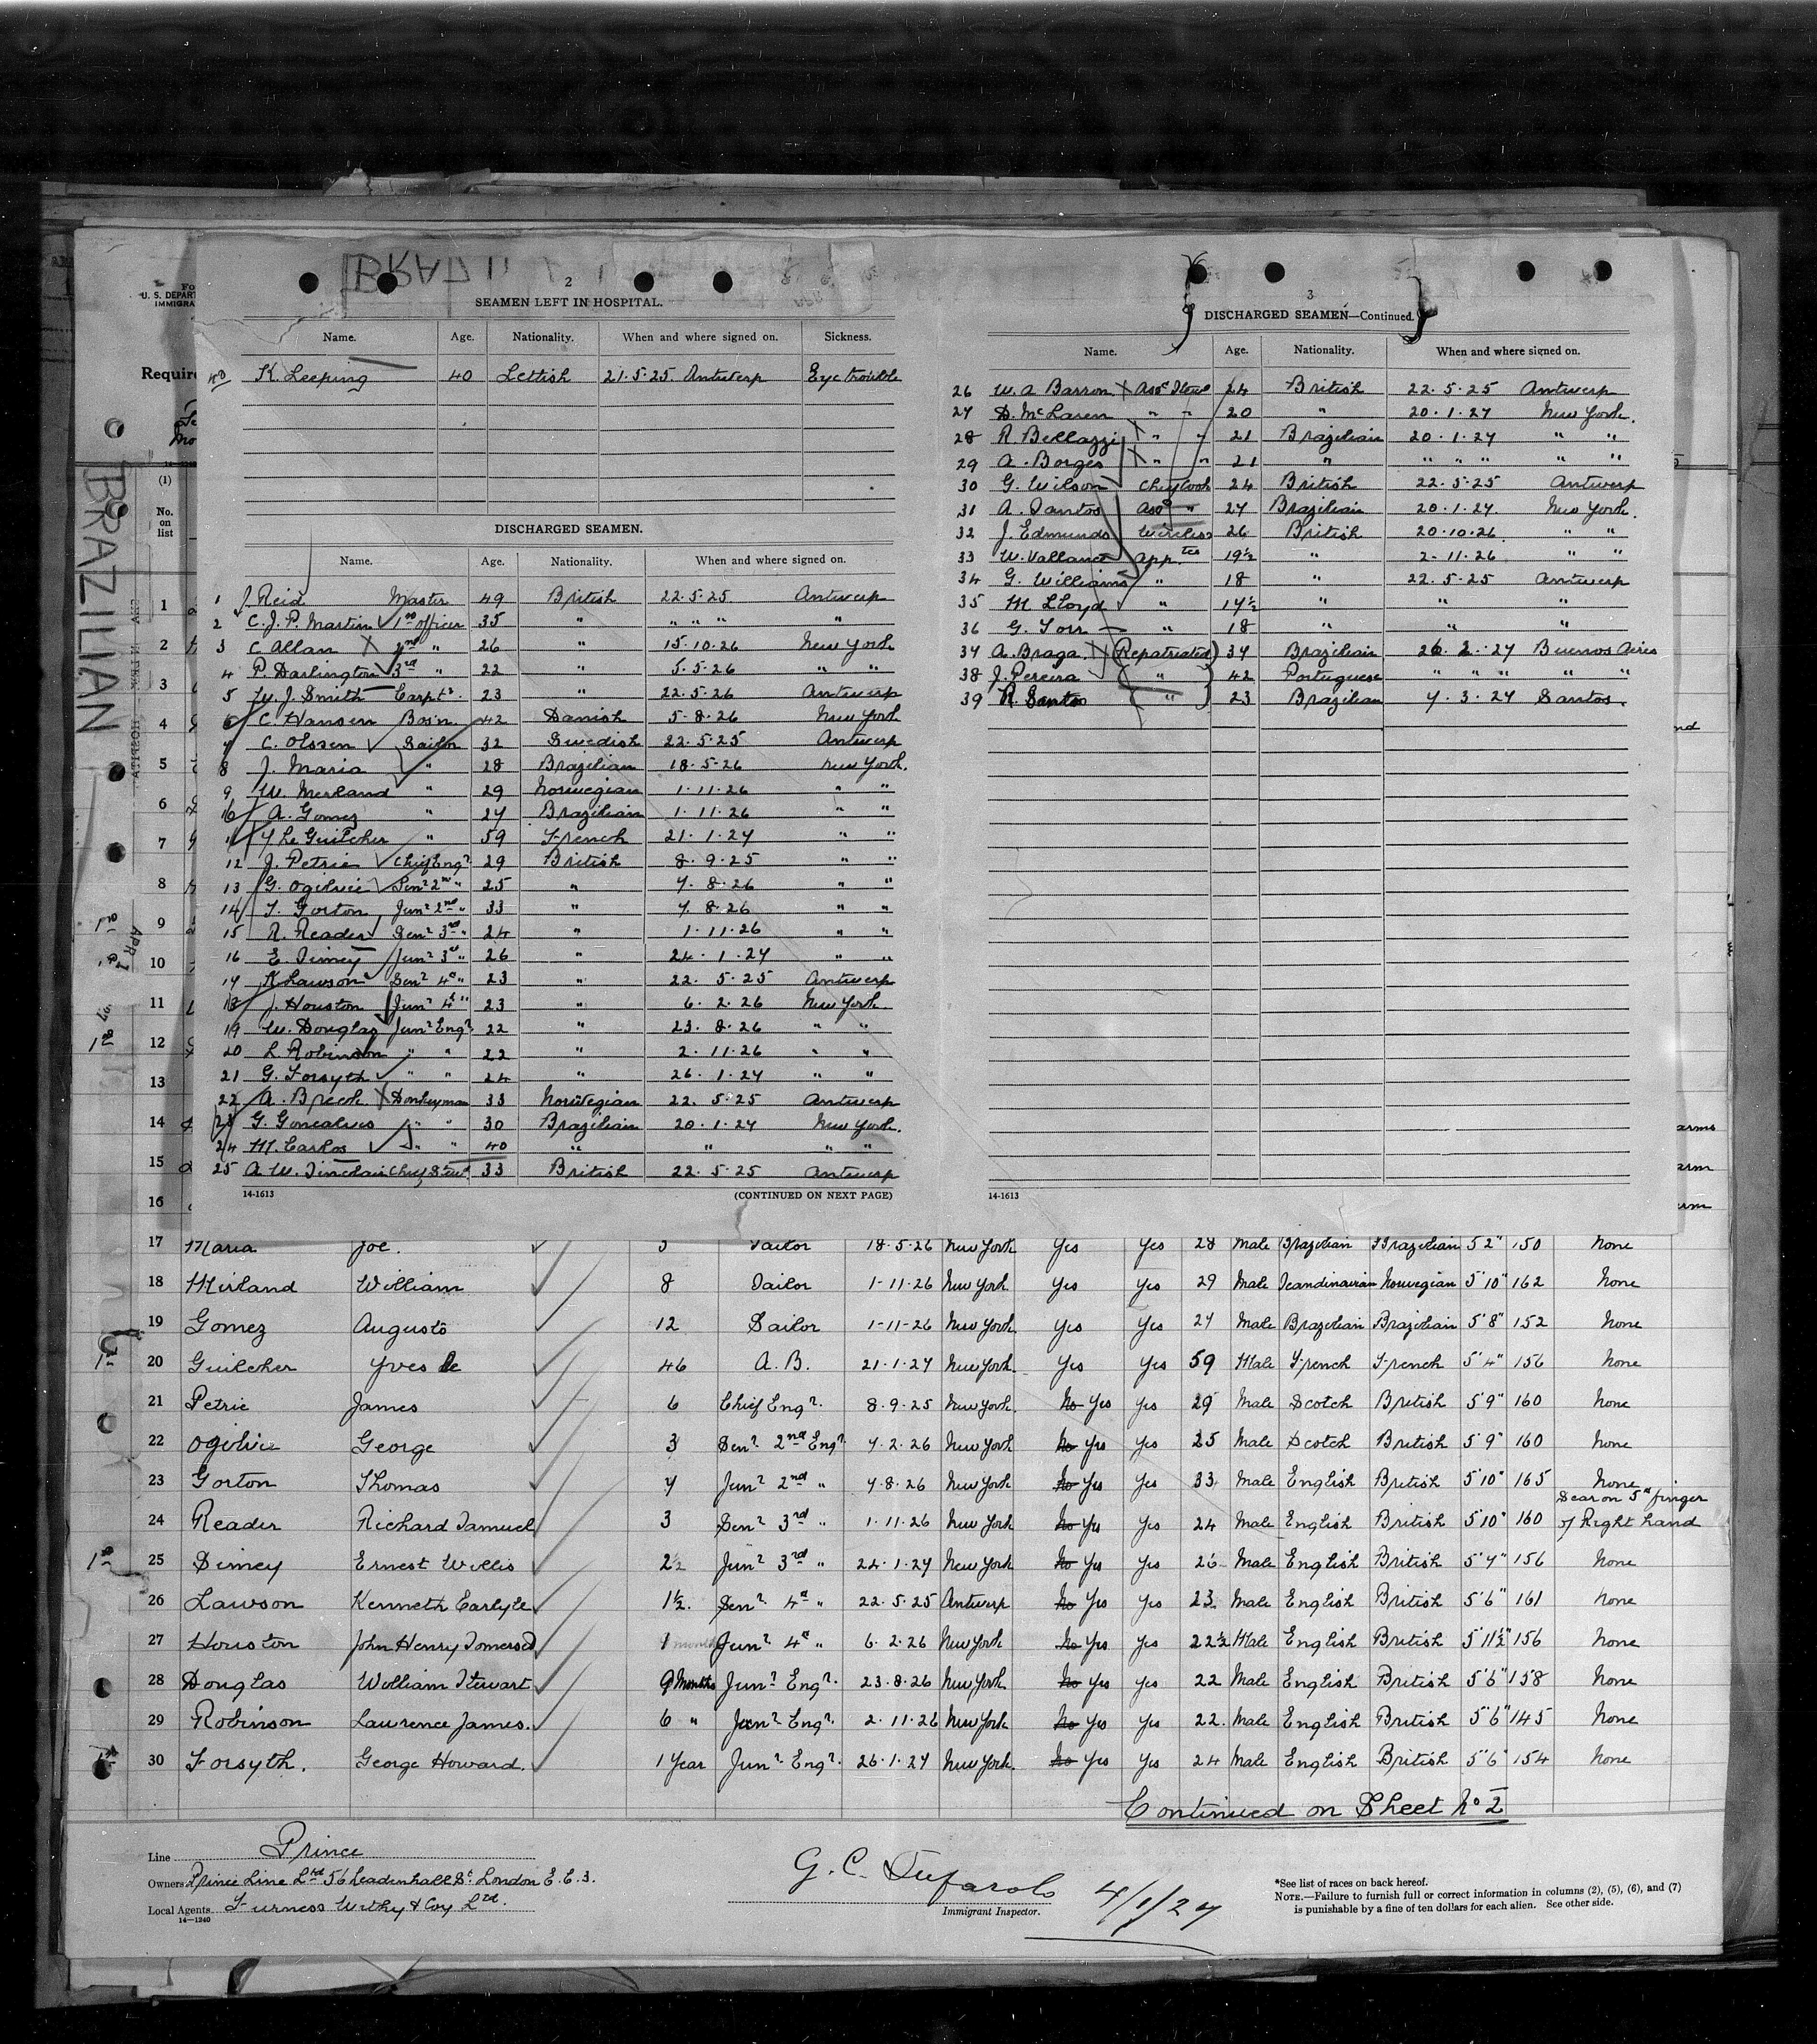 2
SEAMEN LEFT IN HOSPITAL.
Name. Age. Nationality. When and where signed on. Sickness.
K. Leeping 40 Lettish 21.5.25 Antwerp Eye trouble
DISCHARGED SEAMEN.
Name. Age. Nationality. When and where signed on.
1 J. Reid Master 49 British 22.5.25 Antwerp
2 C. J. P. Martin 1st officer 35 " " " " "
3 C Allan 2nd " 26 " 15.10.26 New York
4 P. Darlington 3rd " 22 " 5.5.26 " "
5 W. J. Smith Carptr. 23 " 22.5.26 Antwerp
6 C. Hansen Bosn. 42 Danish 5.8.26 New York
7 C. Olssen Sailor 32 Swedish 22.5.25 Antwerp
8 J. Maria " 28 Brazilian 18.5.26 New York.
9 W. Merland " 29 Norwegian 1.11.26 " "
10 A. Gomez " 27 Brazilian 1.11.26 " "
11 Y Le Guilcher " 59 French 21.1.27 " "
12 J. Petrie Chief Engr 29 British 8.9.25 " "
13 G. Ogilvie Senr 2nd " 25 " 7.8.26 " "
14 T. Gorton Junr 2nd " 33 " 7.8.26 " "
15 R. Reader Senr 3rd " 24 " 1.11.26 " "
16 E. Simey Junr 3rd " 26 " 24.1.27 " "
17 K Lawson Senr 4th " 23 " 22.5.25 Antwerp
18 J. Houston Junr 4th " 23 " 6.2.26 New York.
19 W. Douglas Junr Engr 22 " 23.8.26 " "
20 L. Robinson " " 22 " 2.11.26 " "
21 G. Forsyth " " 24 " 26.1.27 " "
22 A. Breck Donkeyman 33 Norwegian 22.5.25 Antwerp
23 G. Goncalves " " 30 Brazilian 20.1.27 New York.
24 M. Carlos " " 40 " " " "
25 A. W. Sinclair Chief Stewd 33 British 22.5.25 Antwerp
14-1613 (CONTINUED ON NEXT PAGE)
3
DISCHARGED SEAMEN—Continued.
Name. Age. Nationality. When and where signed on.
26 W. A Barron Asst Stewd 24 British 22.5.25 Antwerp
27 D. McLaren " " 20 " 20.1.27 New York.
28 R. Bellazzi " " 21 Brazilian 20.1.27 " "
29 A. Borges " " 21 " " " " " "
30 G. Wilson Chief Cook 24 British 22.5.25 Antwerp
31 A. Santos Asst " 27 Brazilian 20.1.27. New York.
32 J. Edmunds Wireless 26 British 20.10.26 " "
33 W. Vallance App.tes 19½ " 2.11.26 " "
34 G. Williams " 18 " 22.5.25 Antwerp
35 M Lloyd " 17½ " " "
36 G. Torr " 18 " " "
37 A. Braga. (Repatriated) 37 Brazilian 26.2.27 Buenos Aires
38 J. Pereira ( " ) 42 Portuguese " " " " "
39 R. Santos ( " ) 23 Brazilian 7.3.27 Santos.
14-1613
U. S. DEPART
IMMIGRA
Require
(1)
No. on list
BRAZILIAN
1
2
3
4
5
6
7
8
9
10
11
12
13
14
15
16
arms
arm
arm
17 Maria Joe. 5 Sailor 18.5.26 New York Yes Yes 28 Male Brazilian Brazilian 5'2" 150 None
18 Mirland William 8 Sailor 1-11-26 New York Yes Yes 29 Male Scandinavian Norwegian 5'10" 162 None
19 Gomez Augusto 12 Sailor 1-11-26 New York Yes Yes 27 Male Brazilian Brazilian 5'8" 152 None
20 Guilcher Yves le 46 A.B. 21.1.27 New York Yes Yes 59 Male French French 5'4" 156 None
21 Petrie James 6 Chief Engr. 8.9.25 New York. No Yes Yes 29 Male Scotch British 5'9" 160 None
22 Ogilvie George 3 Senr 2nd Engr 7.2.26 New York No Yes Yes 25 Male Scotch British 5'9" 160 None
23 Gorton Thomas 7 Junr 2nd " 7.8.26 New York No Yes Yes 33 Male English British 5'10" 165 None
24 Reader Richard Samuel 3 Senr 3rd " 1.11.26 New York No Yes Yes 24 Male English British 5'10" 160 Scar on 5th finger of Right hand
25 Simey Ernest Willis 2½ Junr 3rd " 24.1.27 New York No Yes Yes 26 Male English British 5'7" 156 None
26 Lawson Kenneth Carlyle 1½. Senr 4th " 22.5.25 Antwerp No Yes Yes 23 Male English British 5'6" 161 None
27 Houston John Henry Somersd 1 month Junr 4th " 6.2.26 New York No Yes Yes 22½ Male English British 5'11½" 156 None
28 Douglas William Stewart 9 Months Junr Engr. 23.8.26 New York No Yes Yes 22 Male English British 5'6" 158 None
29 Robinson Lawrence James. 6 " Junr Engr. 2.11.26 New York No Yes Yes 22. Male English British 5'6" 145 None
30 Forsyth. George Howard. 1 Year Junr Engr. 26.1.27 New York. No Yes Yes 24 Male English British 5'6" 154 None
Continued on Sheet No 2
Line Prince
Owners Prince Line Ltd 56 Leadenhall St London E.C.3.
Local Agents Furness Withy & Coy Ltd.
14—1240
G. C. Tufarolo
Immigrant Inspector.
4/1/27
*See list of races on back hereof.
NOTE.—Failure to furnish full or correct information in columns (2), (5), (6), and (7)
is punishable by a fine of ten dollars for each alien. See other side.